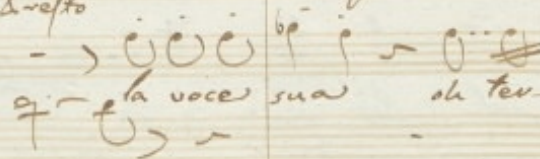 Aresto
la voce sua oh ter-